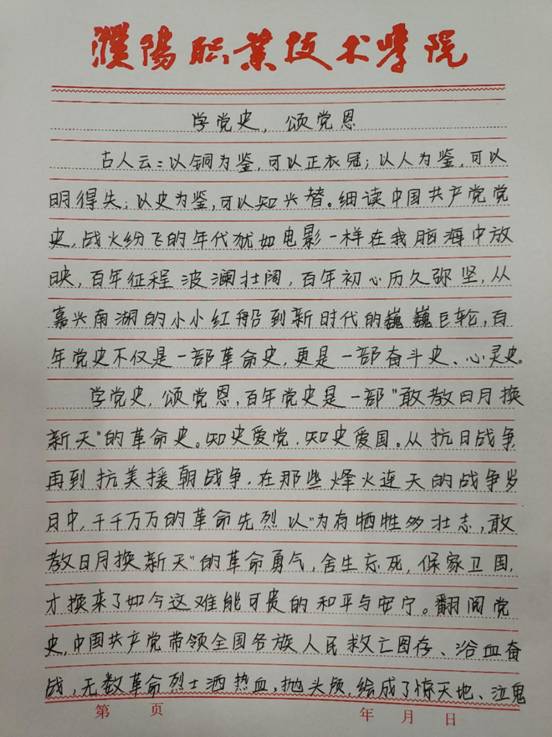 濮陽职业技术学院
学党史，颂党恩
古人云：以铜为鉴，可以正衣冠；以人为鉴，可以
明得失；以史为鉴，可以知兴替。细读中国共产党党
史，战火纷飞的年代犹如电影一样在我脑海中放
映，百年征程波澜壮阔，百年初心历久弥坚，从
嘉兴南湖的小小红船到新时代的巍巍巨轮，百
年党史不仅是一部革命史，更是一部奋斗史、心灵史。
学党史，颂党恩，百年党史是一部“敢教日月换
新天”的革命史。知史爱党，知史爱国。从抗日战争
再到抗美援朝战争，在那些烽火连天的战争岁
月中，千千万万的革命先烈以“为有牺牲多壮志，敢
教日月换新天”的革命勇气，舍生忘死，保家卫国，
才换来了如今这难能可贵的和平与安宁。翻阅党
史，中国共产党带领全国各族人民救亡图存、浴血奋
战，无数革命烈士洒热血，抛头颅，绘成了惊天地、泣鬼
第 页 年 月 日